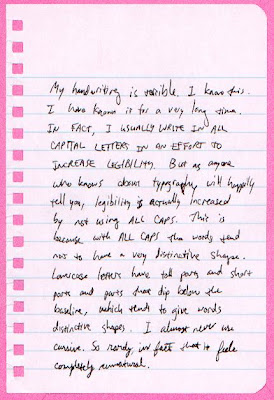 My handwriting is terrible. I know this.
I have known it for a very long time.
IN FACT, I USUALLY WRITE IN ALL
CAPITAL LETTERS IN AN EFFORT TO
INCREASE LEGIBILITY. But as anyone
who knows about typography will happily
tell you, legibility is actually increased
by not using ALL CAPS. This is
because with ALL CAPS the words tend
not to have a very distinctive shape.
Lowercase letters have tall parts and short
parts and parts that dip below the
baseline, which tend to give words
distinctive shapes. I almost never use
cursive. So rarely, in fact that it feels
completely unnatural.